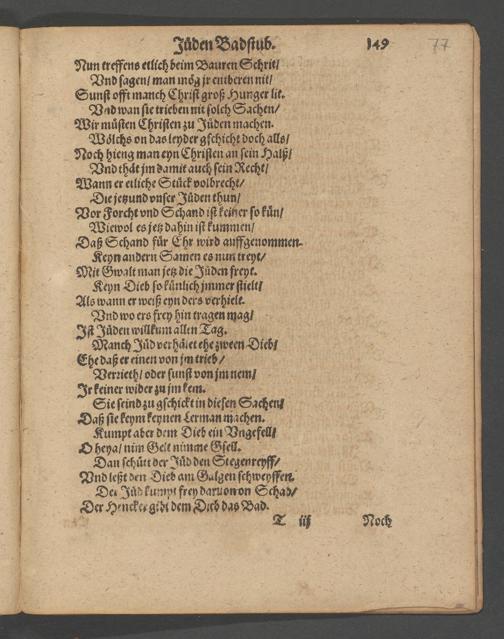 Jüden Badstub. 149 77
Nun treffens etlich beim Bauren Schrit/
Vnd sagen/ man mög jr entberen nit/
Sunst offt manch Christ groß Hunger lit.
Vnd wan sie trieben nit solch Sachen/
Wir müsten Christen zu Jüden machen.
Wölchs on das leyder gschicht doch alls/
Noch hieng man eyn Christen an sein Halß/
Vnd thät jm damit auch sein Recht/
Wann er etliche Stück volbrecht/
Die jetz und vnser Jüden thun/
Vor Forcht vnd Schand ist keiner so kün/
Wiewol es jetz dahin ist kummen/
Daß Schand für Ehr wird auffgenommen.
Keyn andern Samen es nun treyt/
Mit Gwalt man jetz die Jüden freyt.
Keyn Dieb so künlich jmmer stielt/
Als wann er weiß eyn ders verhielt.
Vnd wo ers frey hin tragen mag/
Ist Jüden willkum allen Tag.
Manch Jüd verhälet ehe zween Dieb/
Ehe daß er einen von jm trieb/
Verrieth/ oder sunst von jm nem/
Jr keiner wider zu jm kem.
Sie seind zu gschickt in diesen Sachen/
Daß sie keym keynen Lerman machen.
Kumpt aber dem Dieb ein Vngefell/
O heya/ nim Gelt nimme Gsell.
Dan schütt der Jüd den Stegenreyff/
Vnd leßt den Dieb am Galgen schweyffen.
Der Jüd kumpt frey daruon on Schad/
Der Hencker gibt dem Dieb das Bad.
T iij Noch